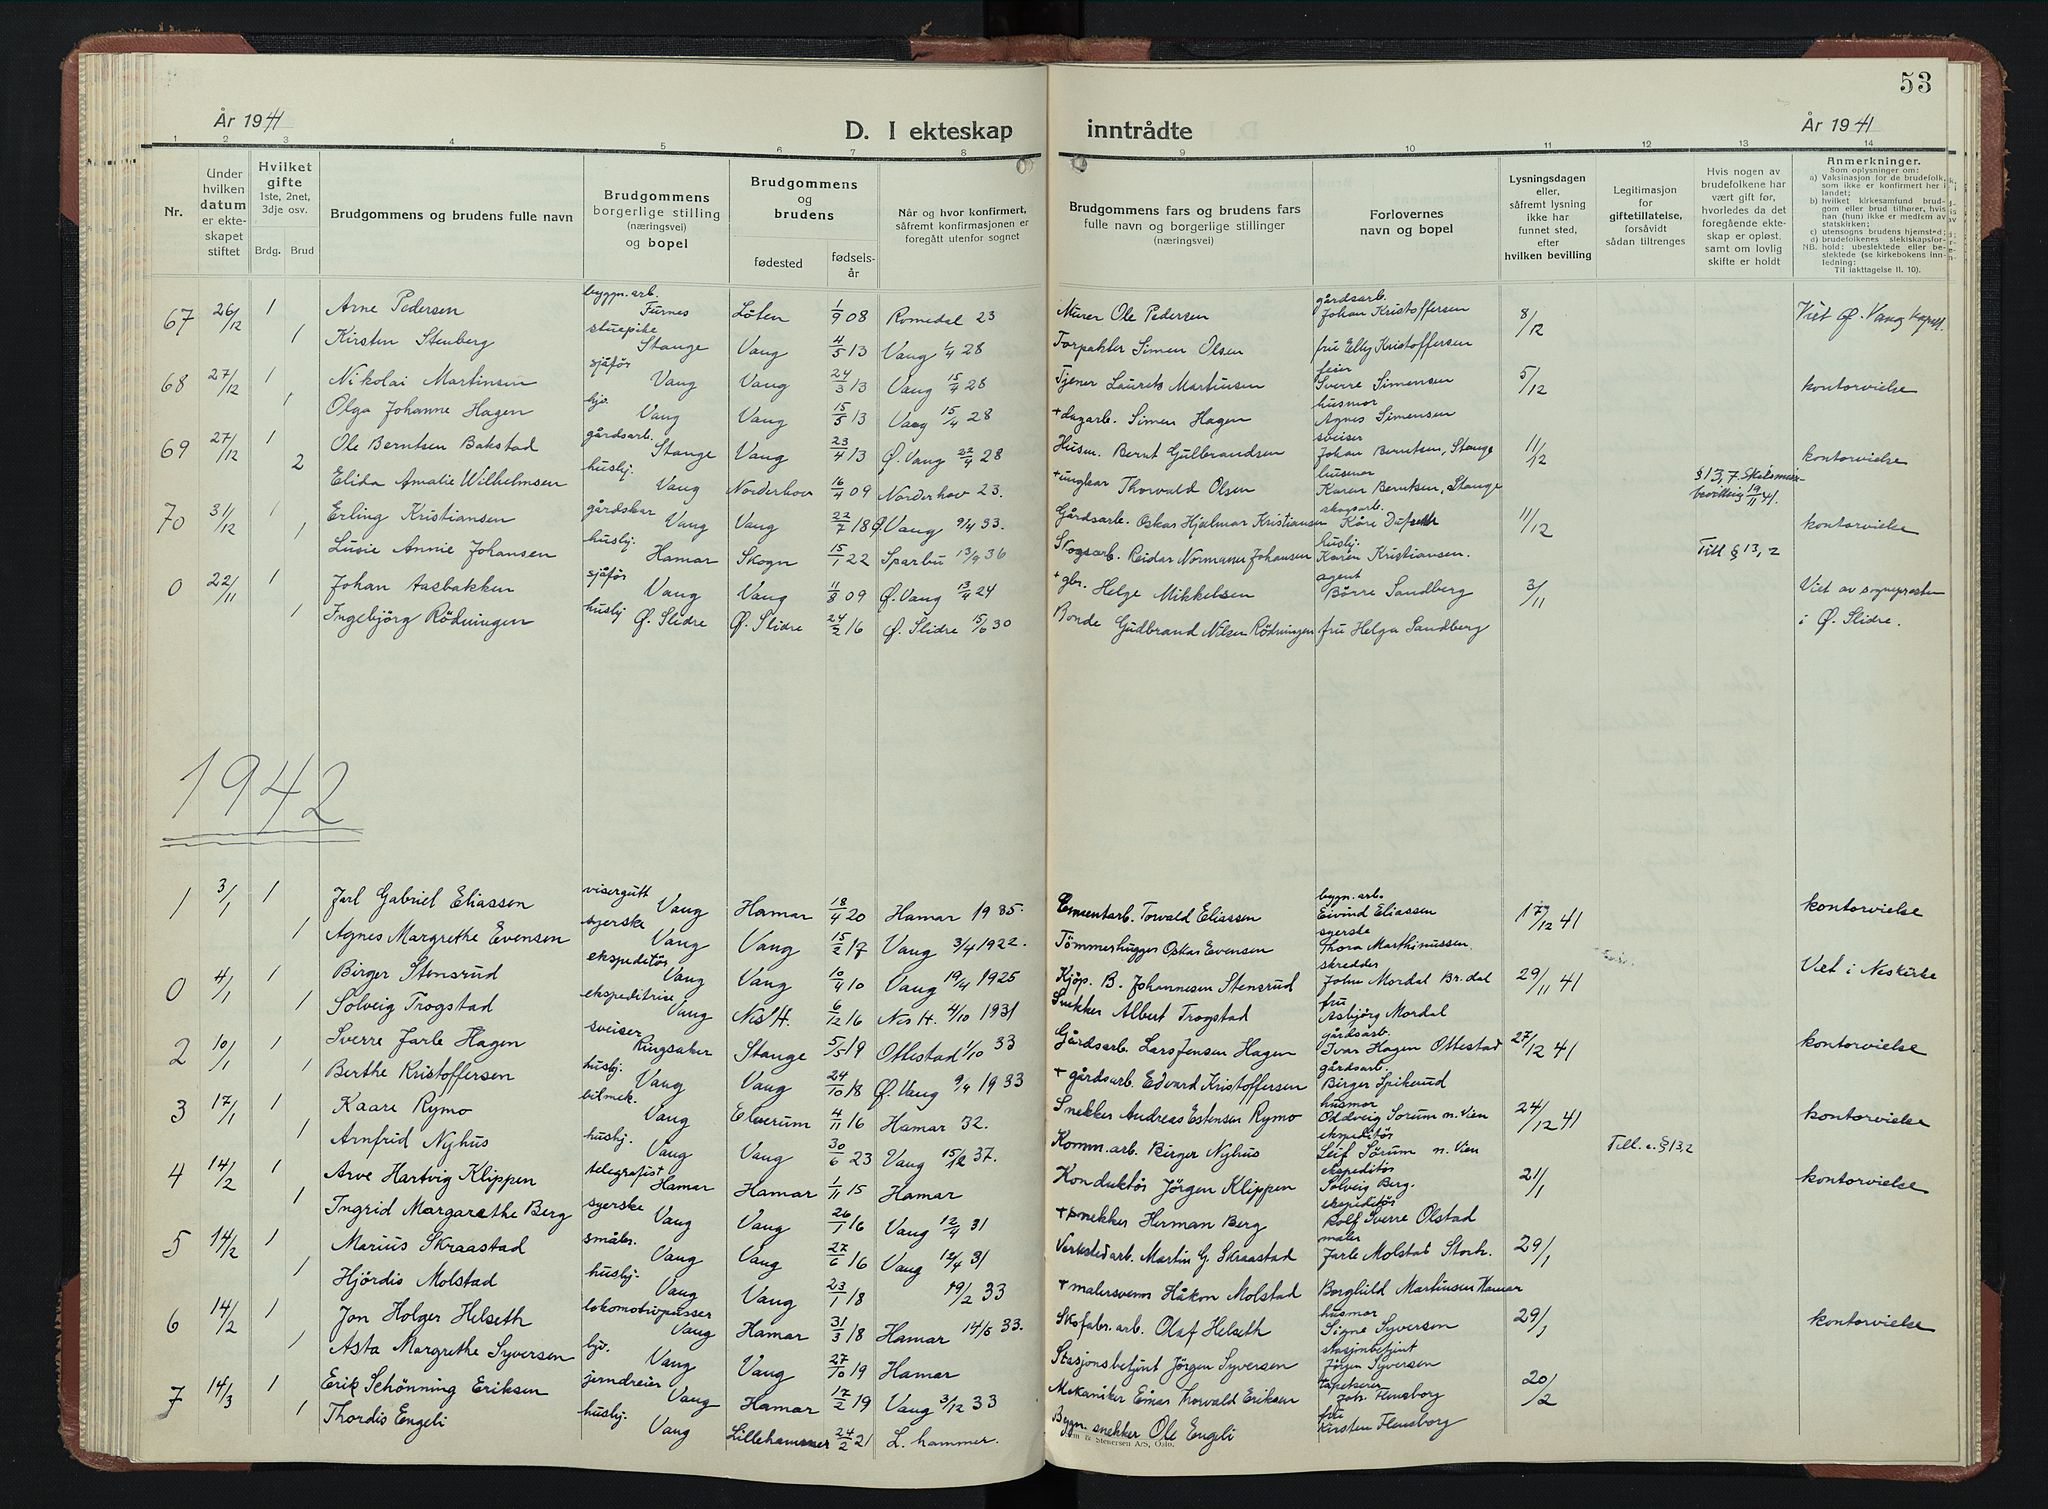 53
År 1941
D. I ekteskap inntrådte
År 1941
1 2 3 4 5 6 7 8 9 10 11 12 13 14
Nr.
Under hvilken datum er ekteskapet stiftet
Hvilket gifte 1ste, 2net, 3dje osv.
Brdg. Brud
Brudgommens og brudens fulle navn
Brudgommens borgerlige stilling (næringsvei) og bopel
Brudgommens og brudens
fødested
fødselsår
Når og hvor konfirmert, såfremt konfirmasjonen er foregått utenfor sognet
Brudgommens fars og brudens fars fulle navn og borgerlige stillinger (næringsvei)
Forlovernes navn og bopel
Lysningsdagen eller, såfremt lysning ikke har funnet sted, efter hvilken bevilling
Legitimasjon for giftetillatelse, forsåvidt sådan tiltrenges
Hvis nogen av brudefolkene har vært gift før, hvorledes da det foregående ekteskap er opløst, samt om lovlig skifte er holdt
Anmerkninger.
Som oplysninger om:
a) Vaksinasjon for de brudefolk, som ikke er konfirmert her i landet;
b) hvilket kirkesamfund brudgom eller brud tilhører, hvis han (hun) ikke er medlem av statskirken;
c) utensogns brudens hjemsted;
d) brudefolkenes slekskapsforhold: ubeslektede eller beslektede (se kirkebokens innledning: Til iakttagelse II. 10).
67 26/12 1 Arne Pedersen byggn.arb. Furnes Løten 1/9 08 Romedal 23 Murer Ole Pedersen gårdsarb. Johan Kristoffersen 8/12 Viet Ø. Vang kapell.
1 Kirsten Stenberg stuepike Stange Vang 4/5 13 Vang 1/4 28 Forpakter Simen Olsen fru Elly Kristoffersen
68 27/12 1 Nikolai Martinsen sjåfør Vang Vang 24/3 13 Vang 15/4 28 Tjener Laurets Martinsen feier Sverre Simensen 5/12 kontorvielse
1 Olga Johanne Hagen hjv. Vang Vang 15/5 13 Vang 15/4 28 + dagarb. Simen Hagen husmor Agnes Simensen
69 27/12 1 Ole Berntsen Bakstad gårdsarb. Stange Vang 23/4 13 Ø. Vang 22/4 28 Husm. Bernt Gulbrandsen sveiser Johan Berntsen, Stange 11/12 kontorvielse
2 Elida Amalie Wilhelmsen husbj. Vang Norderhov 16/4 09 Norderhov 23. + ungkar Thorvald Olsen husmor Karen Berntsen, Stange § 13, 7 bevilling 19/11 41.
70 31/12 1 Erling Kristiansen gårdskar Vang Vang 22/7 18 Ø. Vang 9/4 33. Gårdsarb. Oskar Hjalmar Kristiansen skogsarb. Kåre 11/12 kontorvielse
1 Lusie Annie Johansen husbj. Hamar Skogn 15/1 22 Sparbu 13/9 36 Skogsarb. Reidar Normann Johansen husbj. Karen Kristiansen. Till § 13, 2
0 22/11 1 Johan Aasbakken sjåfør Vang Vang 11/8 09 Ø. Vang 13/4 24 + gbr. Helge Mikkelsen agent Børre Sandberg 3/11 Viet av sogneprosten
1 Ingebjörg Rödningen husbj Ø. Slidre Ø. Slidre 24/2 16 Ø. Slidre 15/6 30 Bonde Gudbrand Nilsen Rödningen fru Helga Sandberg i Ø. Slidre.
1942
1 3/1 1 Jarl Gabriel Eliassen visergutt Vang Hamar 18/4 20 Hamar 1935. Cementarb. Torvald Eliassen bygn.arb. Eivind Eliassen 17/12 41 kontorvielse
1 Agnes Margrethe Evensen syerske Vang Vang 15/2 17 Vang 3/4 1922. Tömmerhugger Oskar Evensen syerske Thora Marthinussen.
0 4/1 1 Birger Stensrud ekspeditör Vang Vang 10/4 10 Vang 19/4 1925 Kjöp. B. Johannesen Stensrud skredder John Mordal Br.dal 29/11 41 Viet i Neskirke
1 Solveig Trogstad ekspeditrise Vang Nes H. 6/12 16 Nes H. 4/10 1931 Snekker Albert Trogstad fru Asbjörg Mordal
2 10/1 1 Sverre Jarle Hagen sveiser Ringsaker Stange 5/5 19 Ottestad 1/10 33 Gårdsarb. Lars Jensen Hagen gårdsarb. Ivar Hagen Ottestad 27/12 41 kontorvielse
1 Berthe Kristoffersen husbj. Vang Vang 24/10 18 Ø. Vang 9/4 1933 + gårdsarb. Edvard Kristoffersen gårdsarb. Birger Spikerud
3 17/1 1 Kaare Rymo bilmek. Vang Elverum 4/11 16 Hamar 32. Snekker Andreas Estensen Rymo husmor Oddveig Sorum n. Vien 24/12 41 kontorvielse
1 Arnfrid Nyhus husbj. Vang Vang 30/6 23 Vang 15/2 37. Komm.arb. Birger Nyhus ekspeditör Leif Sörum n. Vien Till. e. § 13, 2
4 14/2 1 Arve Hartvig Klippen telegrafist Hamar Hamar 1/11 15 Hamar Konduktör Jörgen Klippen ekspeditör Solveig Berg. 21/1 kontorvielse
1 Ingrid Margarethe Berg syerske Vang Vang 26/1 16 Vang 12/4 31 + snekker Herman Berg ekspeditör Rolf Sverre Olstad
5 14/2 1 Marius Skraastad småbr. Vang Vang 27/6 16 Vang 12/4 31 Verkstedarb. Martin G. Skraastad maler Jarle Molstad Storh. 29/1
1 Hjördis Molstad husbj. Vang Vang 23/1 18 19/2 33 + malersvenn Håkon Molstad Borghild Martinsen Hamar
6 14/2 1 Jon Holger Helseth lokomotivpusser Vang Hamar 31/3 18 Hamar 14/5 33. Skofabr.arb. Olaf Helseth husmor Signe Syversen 29/1 kontorvielse
1 Asta Margrethe Syversen hjv. Vang Vang 27/10 19 Hamar Stasjonsbetjent Jörgen Syversen stasjonbetjent Jörgen Syversen
7 14/3 1 Erik Schönning Eriksen jerndreier Vang Hamar 17/2 19 Vang 3/12 33 Mekaniker Einar Thorvald Eriksen tapetserer Joh. Flensborg 20/2
1 Thordis Engeli husbj. Vang Lillehammer 24/2 21 L. hammer. Bygn. snekker Ole Engeli fru Kirsten Flensborg
& Stenersen A/S, Oslo.